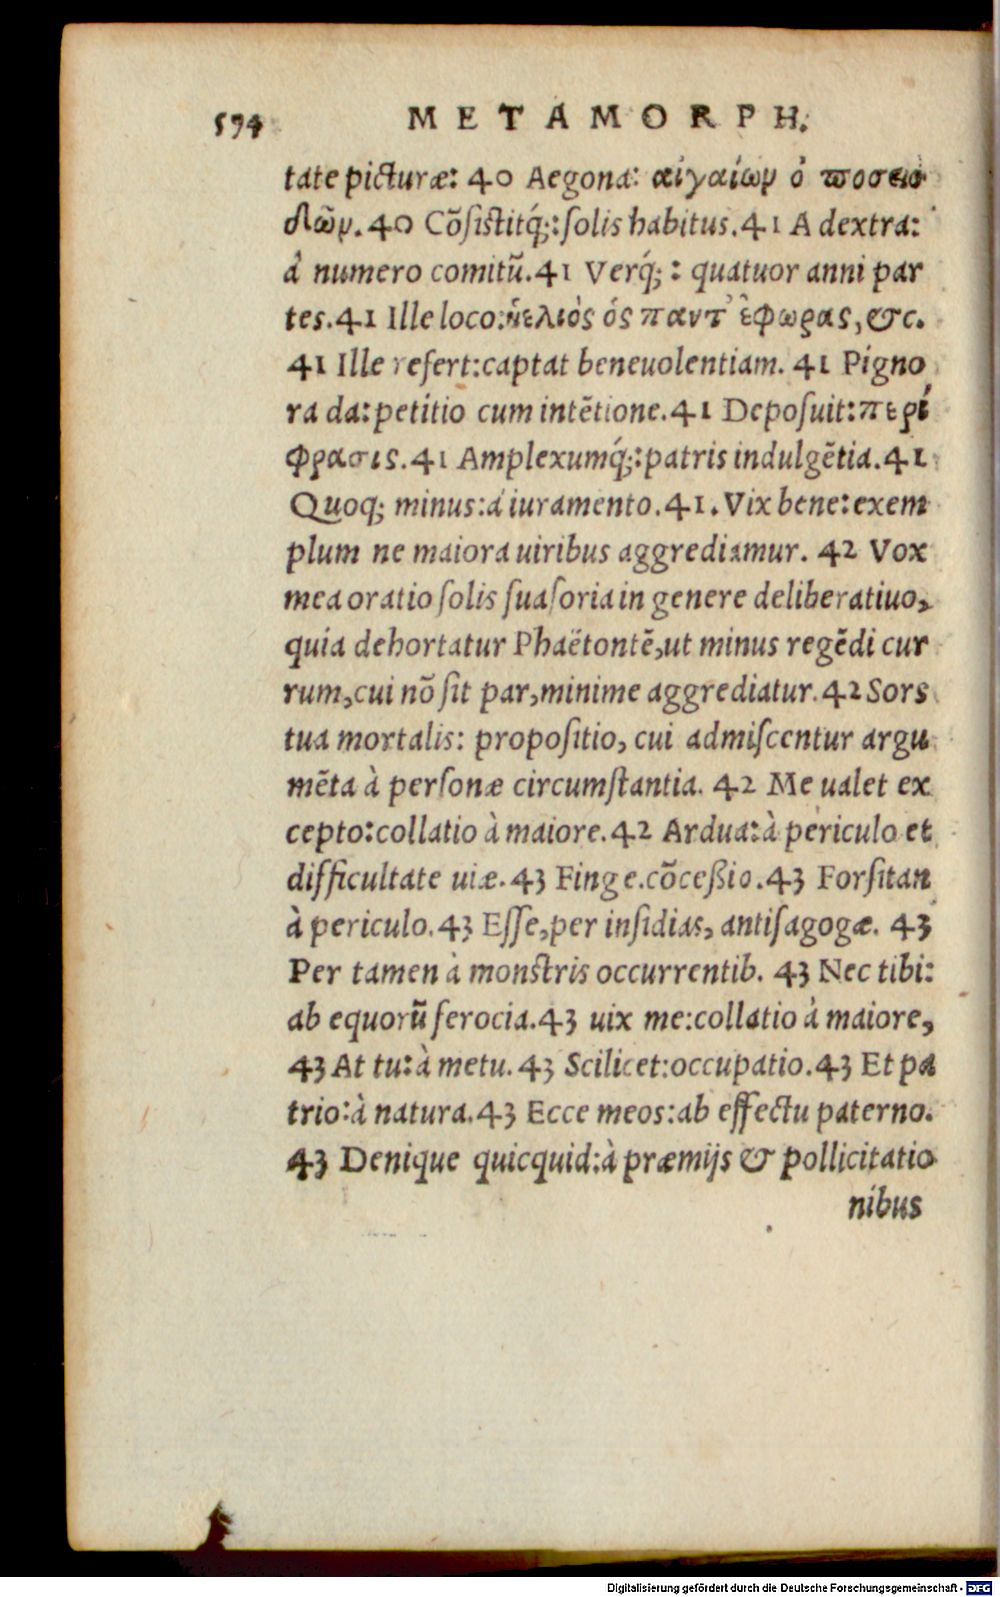 594 METAMORPH.
tate picturæ: 40 Aegona: αἰγαίωμ ὁ ποσειδ
δῶμ. 40 Cõsistitq́;: solis habitus. 41 A dextra:
à numero comitũ. 41 Verq́;: quatuor anni par
tes. 41 Ille loco: ἠελιὸς ὁς παντ᾽ ἐφωρας, &c.
41 Ille refert: captat beneuolentiam. 41 Pigno
ra da: petitio cum intẽtione. 41 Deposuit: περί
φρασις. 41 Amplexumq́;: patris indulgẽtia. 41
Quoq; minus: à iuramento. 41. Vix bene: exem
plum ne maiora uiribus aggrediamur. 42 Vox
mea oratio solis suasoria in genere deliberatiuo,
quia dehortatur Phaëtontẽ, ut minus regẽdi cur
rum, cui nõ sit par, minime aggrediatur. 42 Sors
tua mortalis: propositio, cui admiscentur argu
mẽta à personæ circumstantia. 42 Me ualet ex
cepto: collatio à maiore. 42 Ardua: à periculo et
difficultate uiæ. 43 Finge. cõceßio. 43 Forsitan
à periculo. 43 Esse, per insidias, antisagogæ. 43
Per tamen à monstris occurrentib. 43 Nec tibi:
ab equorũ ferocia. 43 uix me: collatio à maiore,
43 At tu: à metu. 43 Scilicet: occupatio. 43 Et pa
trio: à natura. 43 Ecce meos: ab effectu paterno.
43 Denique quicquid: à præmijs & pollicitatio
nibus
Digitalisierung gefördert durch die Deutsche Forschungsgemeinschaft - DFG